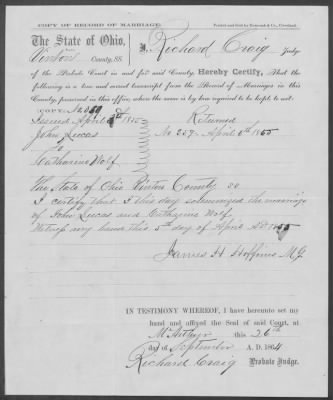 COPY OF RECORD OF MARRIAGE.
The State of Ohio,
Vinton County, SS.
I, Richard Craig Judge
of the Probate Court in and for said County, Hereby Certify, That the
following is a true and correct transcript from the Record of Marriages in this
County, preserved in this office, where the same is by law required to be kept, to wit:
COPY No. 359
Issued April 1855 Returned
John Lucas No. 359. April 6th 1855
To
Catharine Wolf
The State of Ohio Vinton County SS
I certify that I this day solemnized the marriage
of John Lucas and Catharine Wolf.
Witness my hand this 5th day of April AD 1855
James H. Hoffines M.G.
IN TESTIMONY WHEREOF, I have hereunto set my
hand and affixed the Seal of said Court, at
McArthur this 26th
day of September A. D. 1864
Richard Craig Probate Judge.